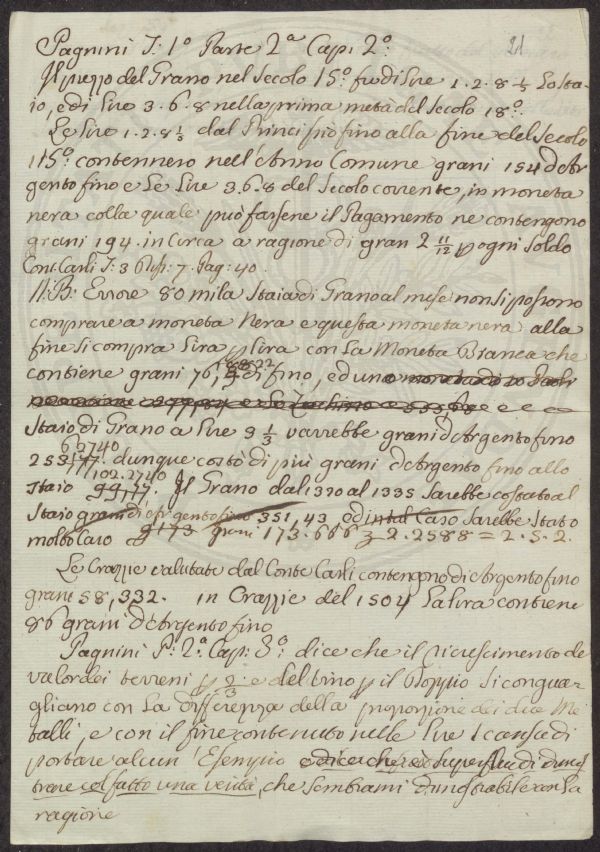 21
Pagnini T: 1º Parte 2ª Cap: 2º
Il prezzo del Grano nel Secolo 15º fu di lire 1. 2. 8 1/3 lo Sta-
io, e di lire 3. 6. 8 nella prima metà del Secolo 18º.
Le lire 1. 2. 8 1/3 dal Principio fino alla fine del Secolo
15º contennero nell'Anno Comune grani 154 d'Ar
gento fino e Le Lire 3. 6. 8 del Secolo corrente, in moneta
nera colla quale può farsene il Pagamento ne contengono
grani 194. in Circa a ragione di gran 2 11/12 p ogni Soldo
Con: Carli T: 3 Pag: 40.
N: B: Errore 80 mila Staia di Grano al mese non si possono
comprare a moneta Nera e questa moneta nera alla
fine si compra Lira p lira con La Moneta Bianca che
contiene grani 76, di fino, ed uno
Staio di Grano a lire 3 1/3 varrebbe grani d'Argento fino
66740
253,177. dunque costò di più grani d'Argento fino allo
102.2740
Staio 99,77. Il Grano dal 1320 al 1335 Sarebbe costato al
Staio grani di Argento fino 351, 43 ed in tal Caso Sarebbe Stato
molto Caro grani 173. 666 2. 2588 = 2. 5. 2.
Le Crazzie valutate dal Conte Carli contengono di Argento fino
grani 58, 332. in Crazzie del 1504 La lira contiene
86 grani d'Argento fino
Pagnini P: 2ª Cap: 3º dice che il ricrescimento de
valor dei terreni p 2/3 e del vino p il Doppio Si congua-
gliano con La differenza della proporzione dei due Me
talli, e con il fine contenuto nelle lire Scansa di
portare alcun Esempio e dice che è superfluo di dimos
trare col fatto una verità, che Sembrami Dimostrabile con La
ragione